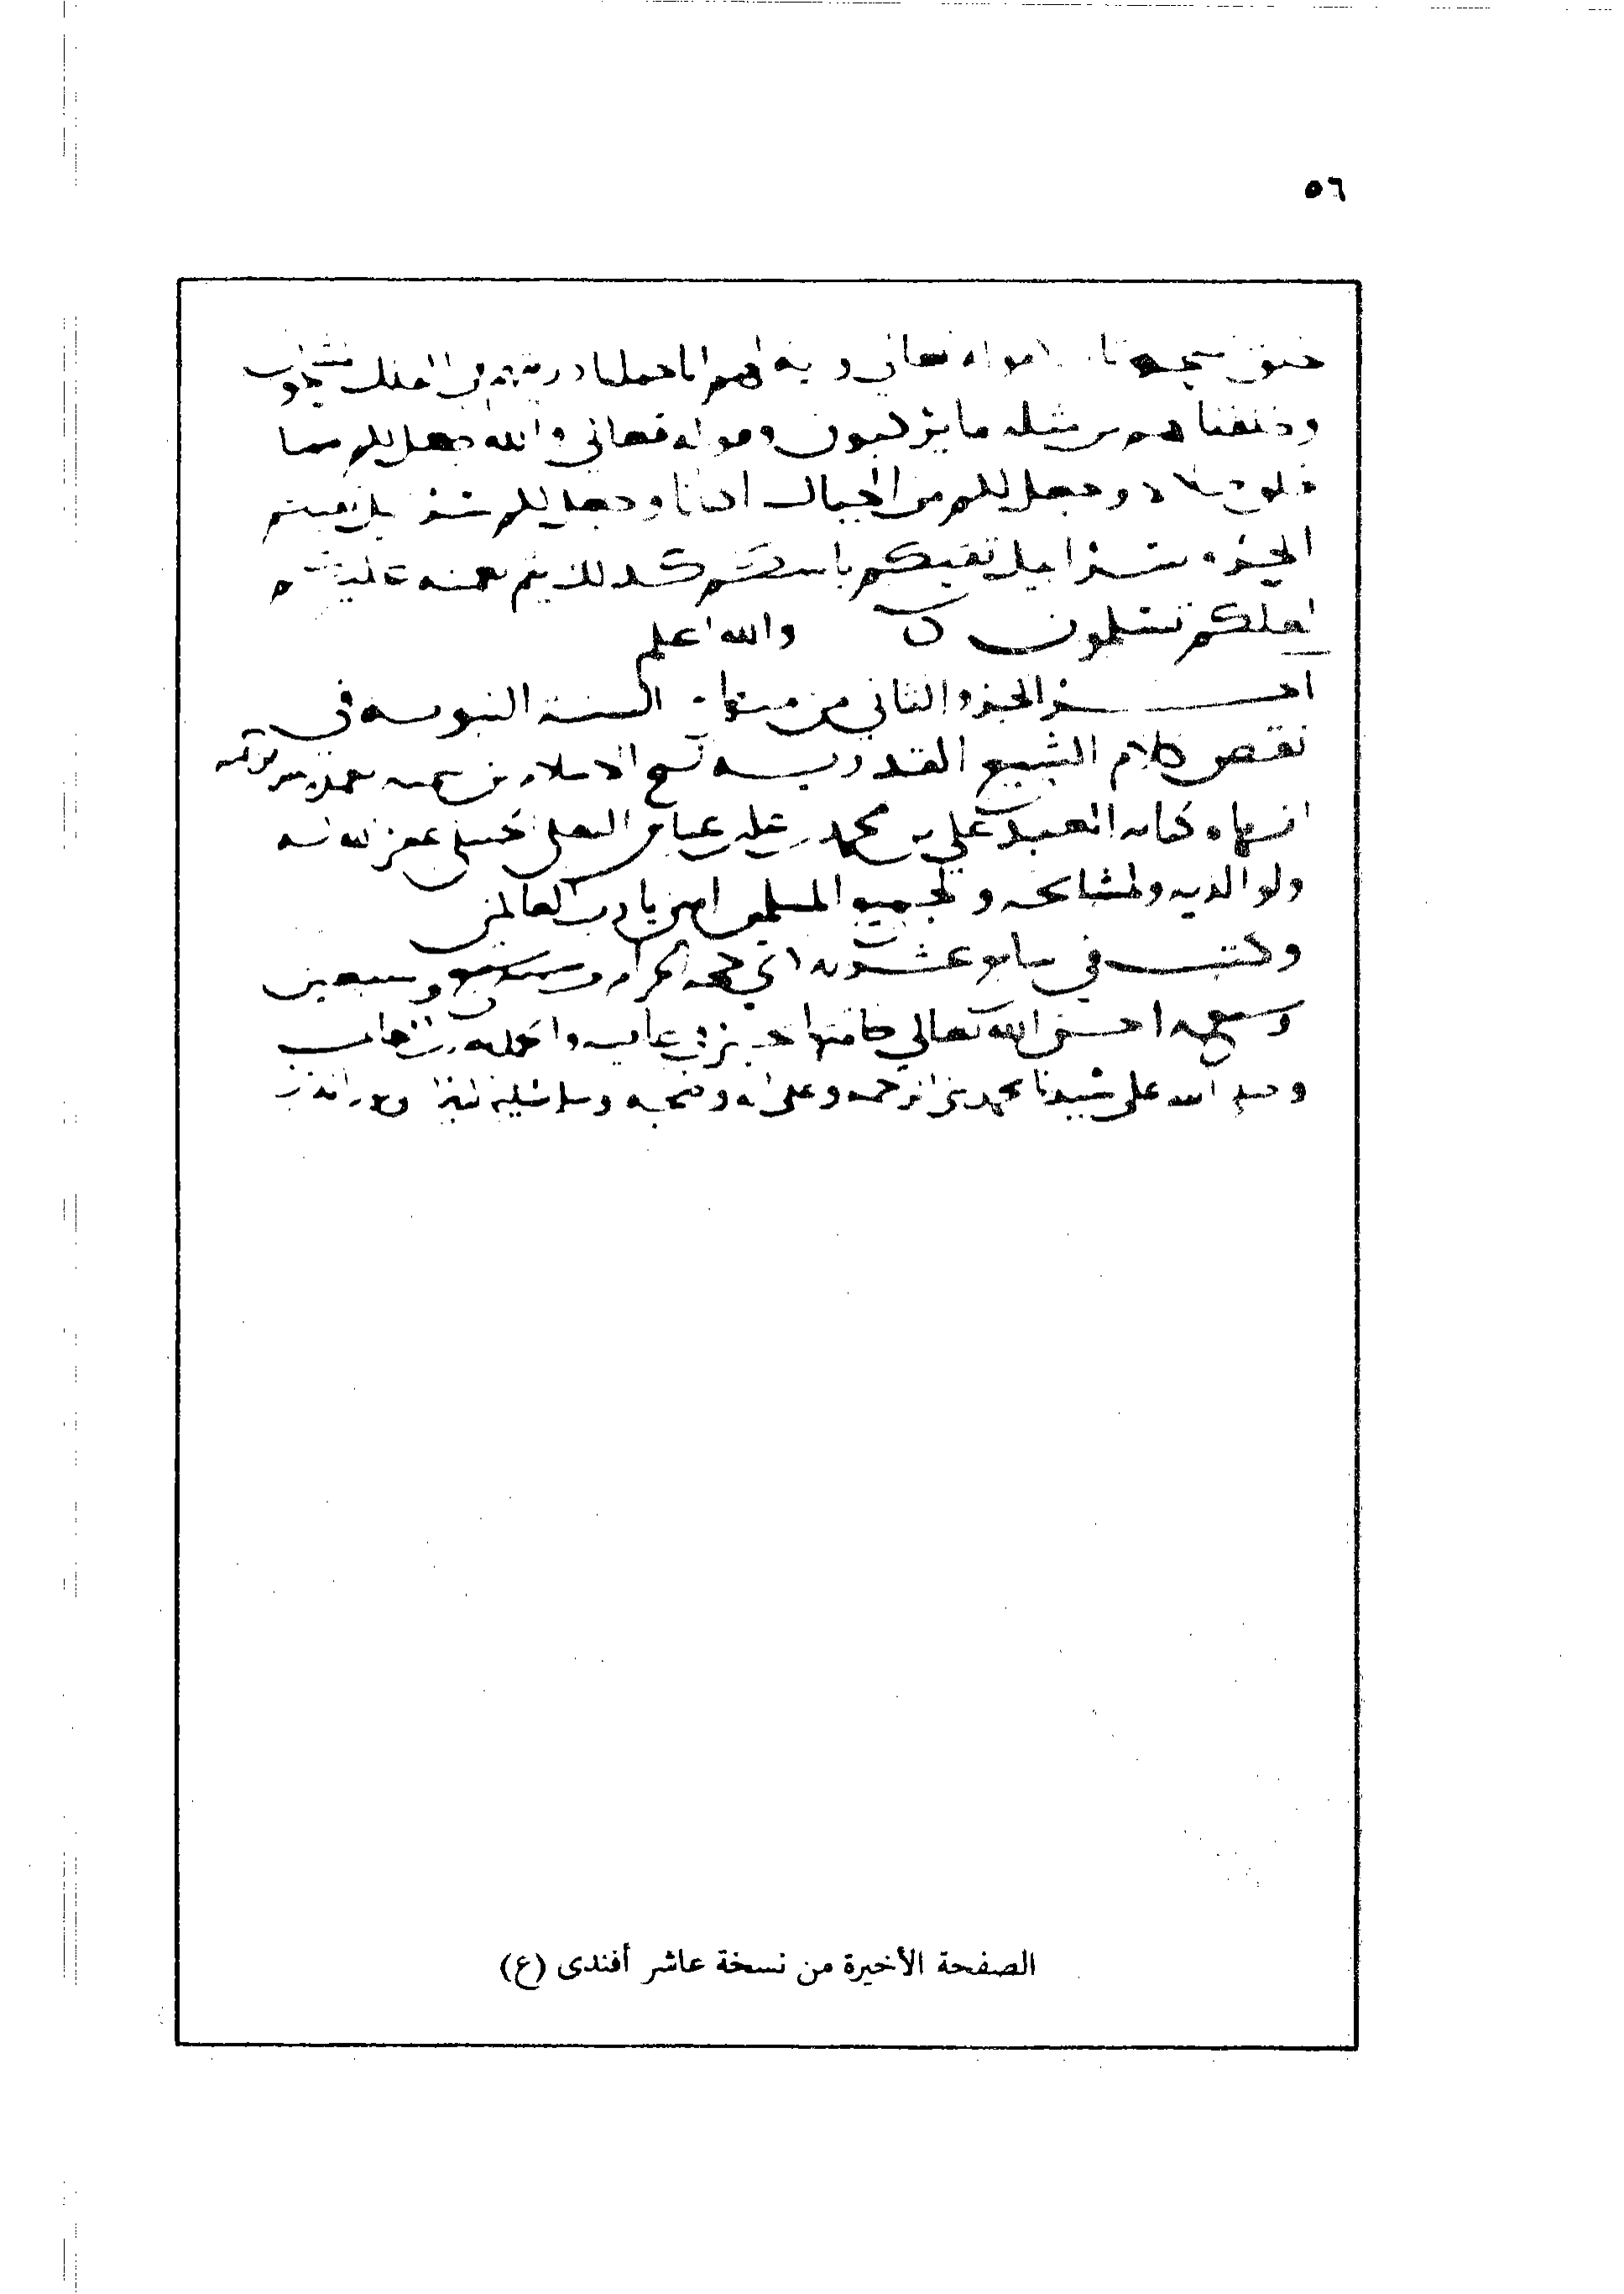 ٥٦
تعالى وآية لهم انا حملنا ذريتهم في الفلك المشحون
وخلقنا لهم من مثله ما يركبون وقوله تعالى والله جعل لكم مما
خلق ظلالا وجعل لكم من الجبال اكنانا وجعل لكم سرابيل تقيكم
الحر وسرابيل تقيكم باسكم كذلك يتم نعمته عليكم
لعلكم تسلمون والله اعلم
اخر الجزء الثاني من منهاج السنة النبوية في
نقض كلام الشيع القدرية
العبد علي بن محمد بن عباس البعلي الحنبلي غفر الله له
ولوالديه ولمشايخه ولجميع المسلمين امين يا رب العالمين
وكتب في سابع عشرين ذي حجة الحرام وسبعين
وسبعمائة احسن الله تعالى خاتمتها
وصلى الله على سيدنا محمد نبي الرحمة وعلى اله وصحبه وسلم تسليما كثيرا
الصفحة الأخيرة من نسخة عاشر أفندى (ع)